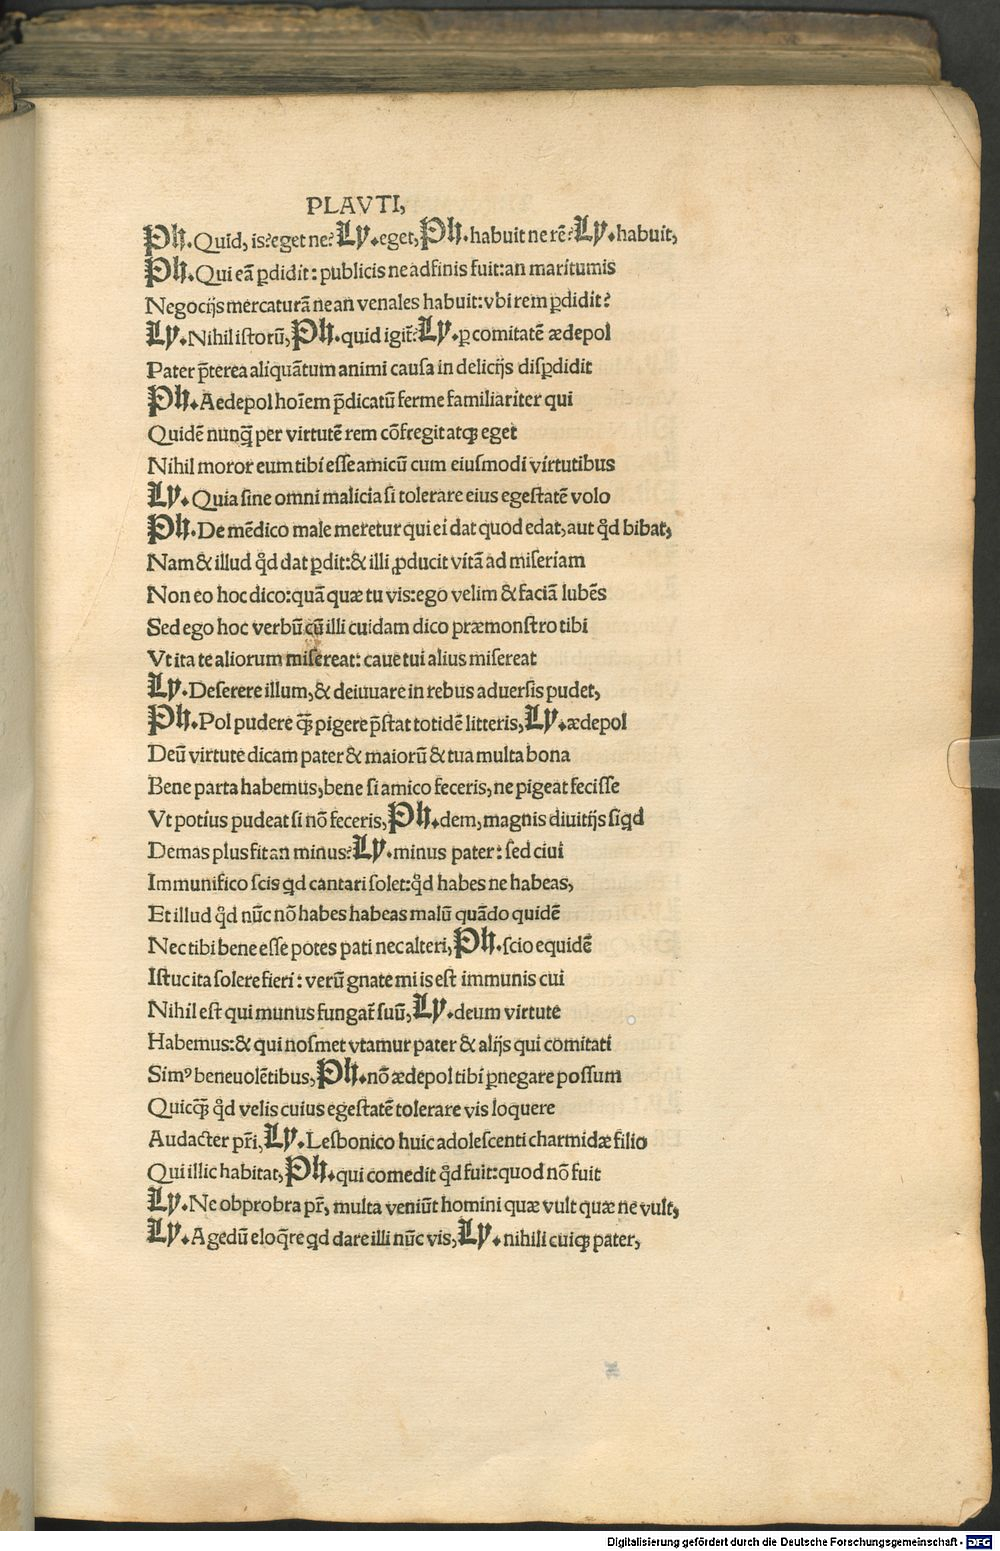 PLAVTI,
Ph. Quid, is? eget ne? Ly. eget, Ph. habuit ne rē? Ly. habuit,
Ph. Qui eā ꝑdidit: publicis ne adfinis fuit: an maritumis
Negocijs mercaturā ne an venales habuit: vbi rem ꝑdidit?
Ly. Nihil istorū, Ph. quid igit̄? Ly. ꝑ comitatē ædepol
Pater p̄terea aliquātum animi causa in delicijs disꝑdidit
Ph. Aedepol hoīem p̄dicatū ferme familiariter qui
Quidē nunq̄ per virtutē rem cōfregit atqꝫ eget
Nihil moror eum tibi esse amicū cum eiusmodi virtutibus
Ly. Quia sine omni malicia si tolerare eius egestatē volo
Ph. De mēdico male meretur qui ei dat quod edat, aut qd̄ bibat,
Nam & illud qd̄ dat ꝑdit: & illi ꝓducit vitā ad miseriam
Non eo hoc dico: quā quæ tu vis: ego velim & faciā lubēs
Sed ego hoc verbū cū illi cuidam dico præmonstro tibi
Vt ita te aliorum misereat: caue tui alius misereat
Ly. Deserere illum, & deiuuare in rebus aduersis pudet,
Ph. Pol pudere qꝫ̄ pigere p̄stat totidē litteris, Ly. ædepol
Deū virtute dicam pater & maiorū & tua multa bona
Bene parta habemus, bene si amico feceris, ne pigeat fecisse
Vt potius pudeat si nō feceris, Ph. dem, magnis diuitijs siqd
Demas plus fit an minus? Ly. minus pater: sed ciui
Immunifico scis qd cantari solet: qd̄ habes ne habeas,
Et illud qd̄ nūc nō habes habeas malū quādo quidē
Nec tibi bene esse potes pati nec alteri, Ph. scio equidē
Istuc ita solere fieri: verū gnate mi is est immunis cui
Nihil est qui munus fungat̄ suū, Ly. deum virtute
Habemus: & qui nosmet vtamur pater & alijs qui comitati
Simꝰ beneuolētibus, Ph. nō ædepol tibi ꝑnegare possum
Quicqꝫ̄ qd̄ velis cuius egestatē tolerare vis loquere
Audacter pr̄i, Ly. Lesbonico huic adolescenti charmidæ filio
Qui illic habitat, Ph. qui comedit qd̄ fuit: quod nō fuit
Ly. Ne obprobra pr̄, multa veniūt homini quæ vult quæ ne vult,
Ly. Agedū eloq̄re qd dare illi nūc vis, Ly. nihili cuiqꝫ pater,
Digitalisierung gefördert durch die Deutsche Forschungsgemeinschaft - DFG